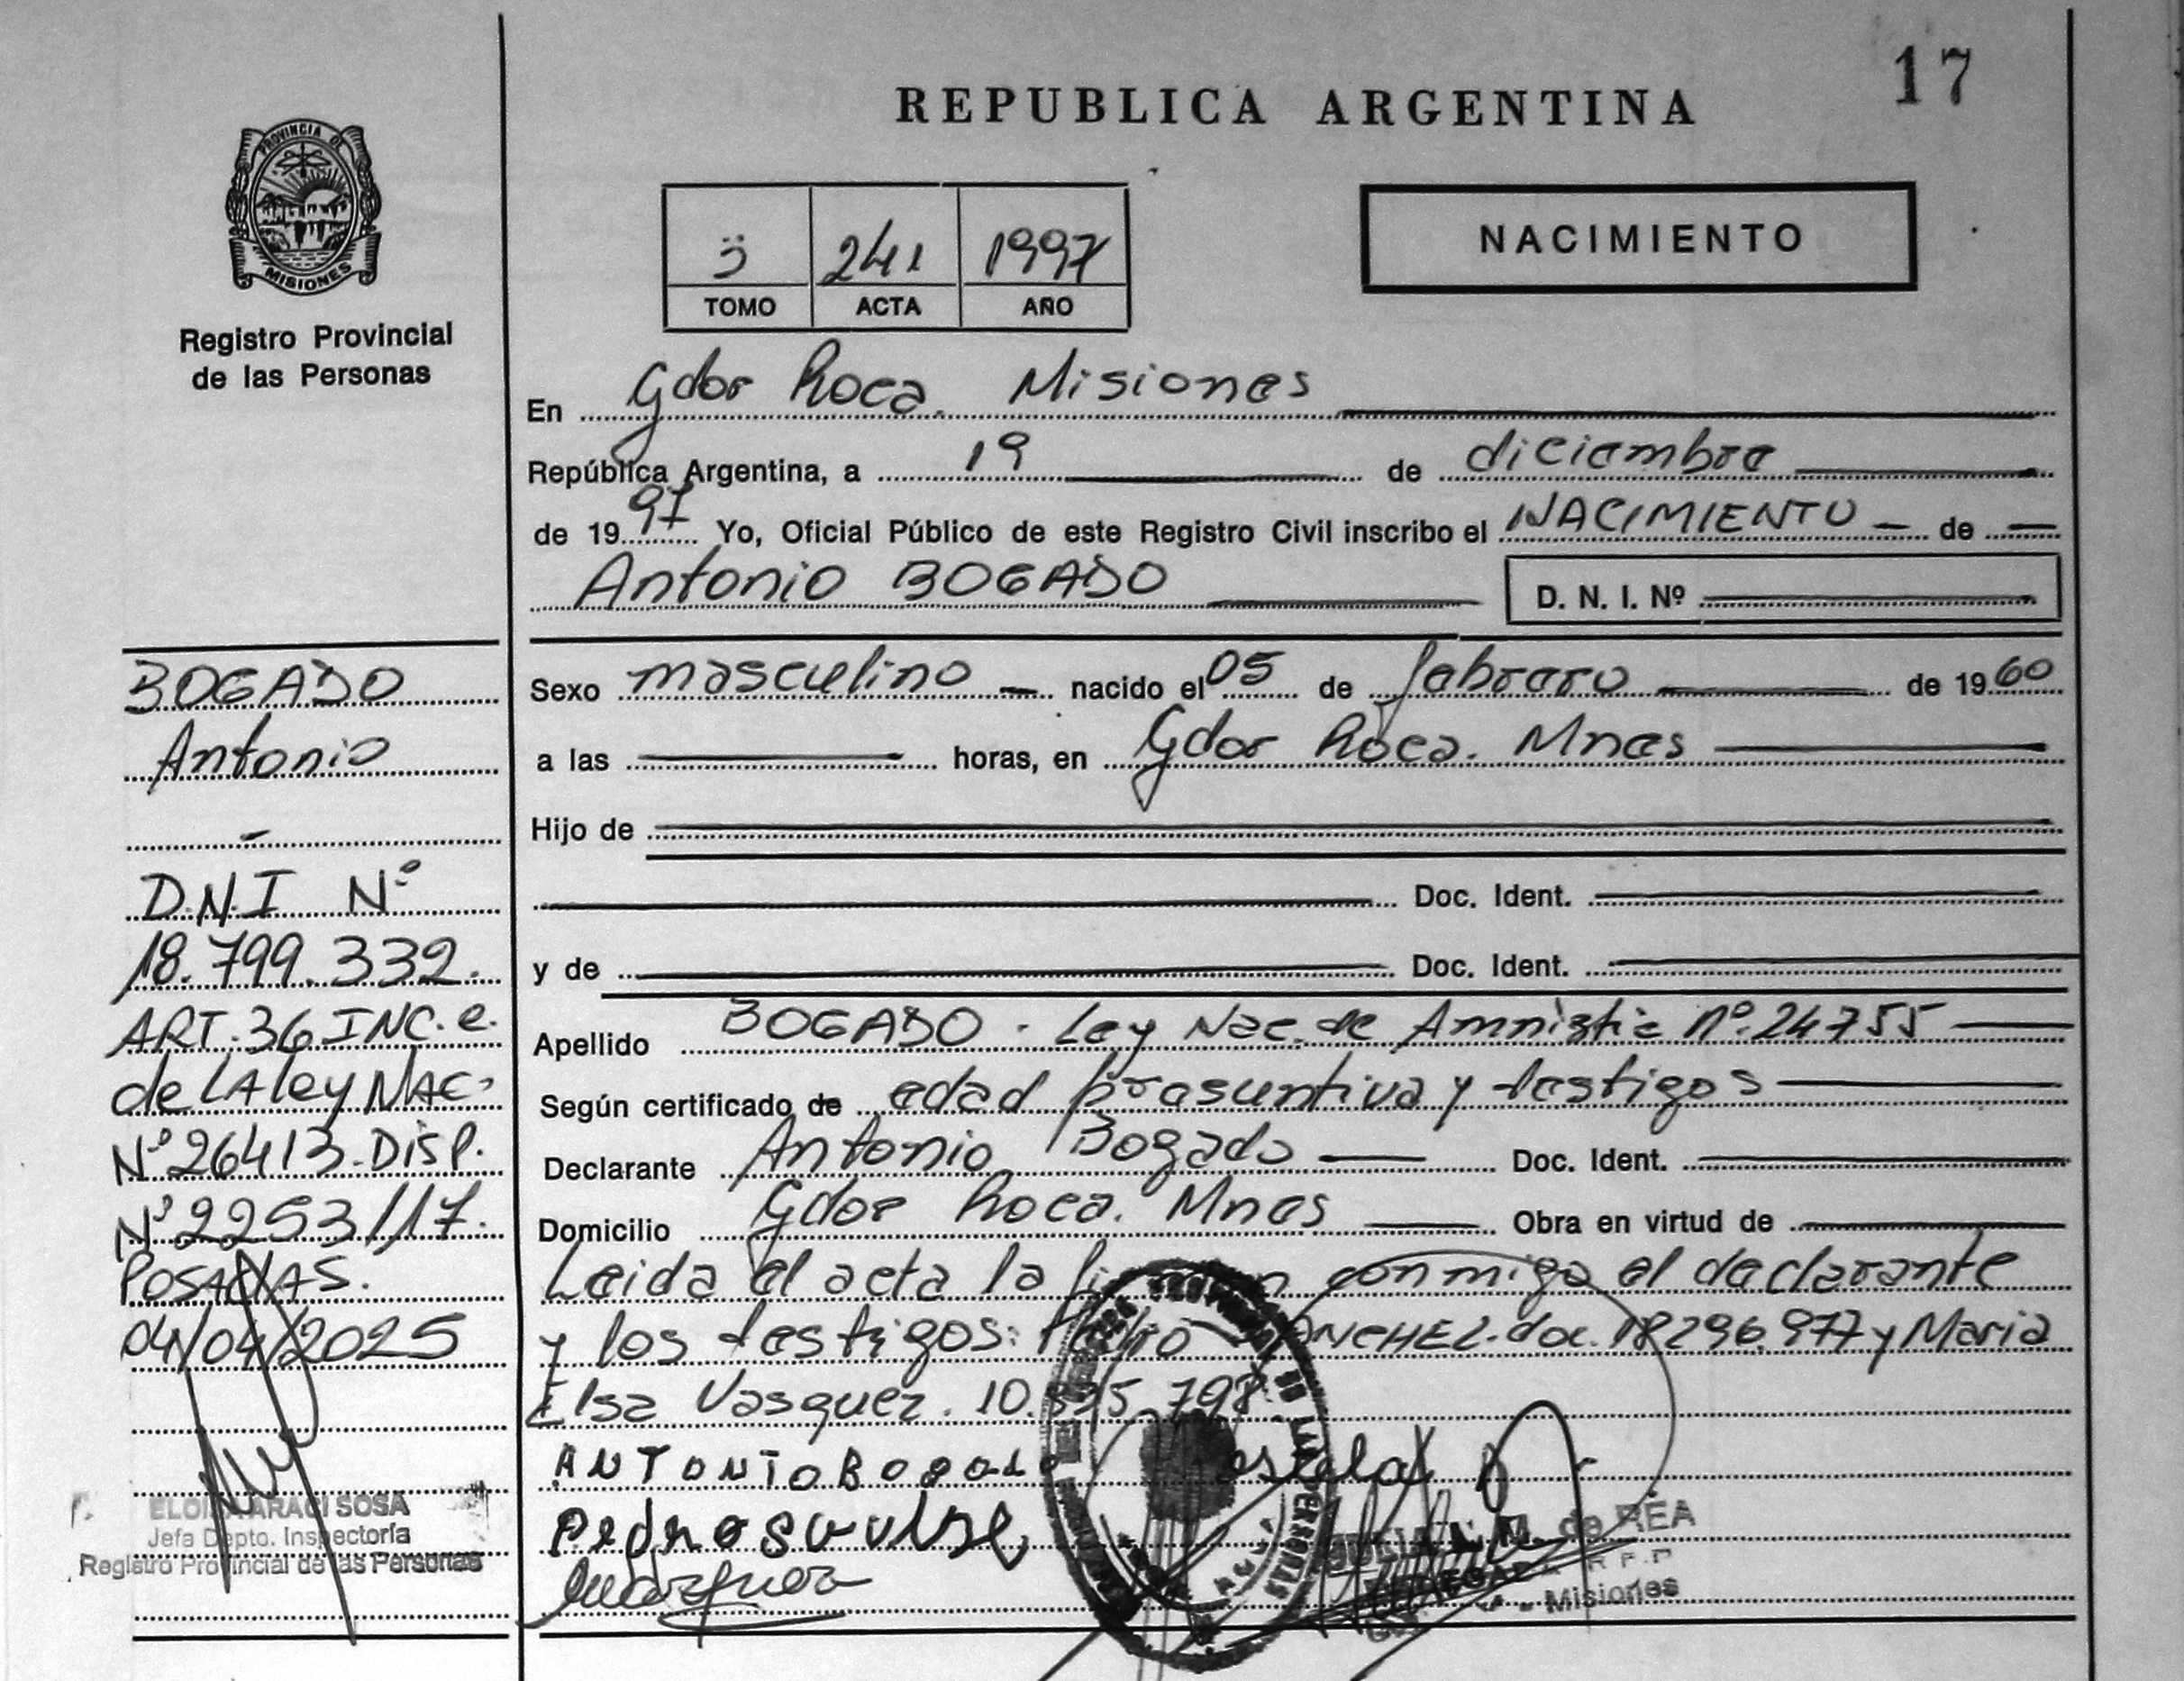 17
REPUBLICA ARGENTINA
PROVINCIA DE
MISIONES
Registro Provincial
de las Personas
241 1997
TOMO ACTA AÑO
NACIMIENTO
En Gdor Roca. Misiones
República Argentina, a 19 de diciembre
de 1997 Yo, Oficial Público de este Registro Civil inscribo el NACIMIENTO de
Antonio BOGADO
D. N. I. Nº
Sexo masculino nacido el 05 de febrero de 1960
a las horas, en Gdor Roca. Mnes
Hijo de
Doc. Ident.
y de Doc. Ident.
Apellido BOGADO - Ley Nac. de Amnistia Nº 24755
Según certificado de edad presuntiva y testigos
Declarante Antonio Bogado Doc. Ident.
Domicilio Gdor Roca. Mnes Obra en virtud de
Leida el acta la conmigo el declarante
y los testigos: doc. 18296.977 y Maria
Elsa Vasquez. 10. 798
ANTONIO BOGADO
Pedro
de REA
R.P.P
Misiones
BOGADO
Antonio
D.N.I Nº
18.799.332.
ART. 36 INC. e.
de LA ley NAC.
Nº 26413. DISP.
Nº 2253/17.
POSADAS.
04/04/2025
ELOISA ARACI SOSA
Jefa Depto. Inspectoría
Registro Provincial de las Personas